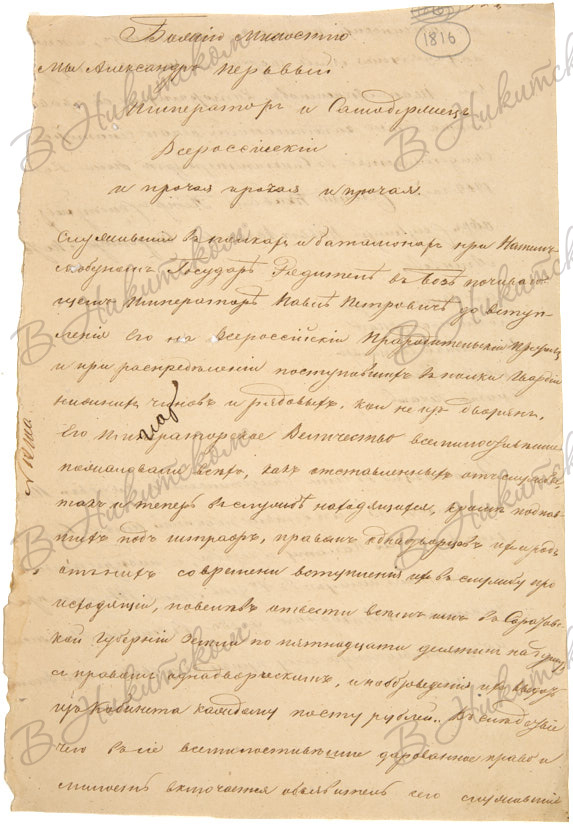 1816
Божію Милостію
Мы Александръ Первый
Императоръ и Самодержецъ
Всероссійскій
и прочая прочая и прочая.
Служившій в полкахъ и баталіонахъ при Нашемъ
любезномъ Государѣ Родителѣ въ Возѣ почиваю
щемъ Императорѣ Павлѣ Петровичѣ до вступ
ленія Его на Всероссійскій Прародительскій Престолъ
и при распредѣленіи поступившихъ в полки Гвардіи
нижнихъ чиновъ и рядовыхъ, кои не изъ дворянъ,
Его Императорское Величество всемилостивѣйше
пожаловалъ всѣхъ, какъ отставленныхъ отъ службы
такъ и теперь в службѣ находящихся, кромѣ подпав
шихъ подъ штрафъ, правомъ однодворцевъ и родъ
отъ нихъ со времени вступленія их въ службу про
исходящій, повелѣвъ отвести всѣмъ имъ в Саратовс
кой губерніи Земли по пятнадцати десятинъ на
съ правомъ однодворческимъ, и на обзаведеніе ихъ выдать
изъ Кабинета каждому по сту рублей. Въ слѣдствіе
чего въ сіе всемилостивѣйше дарованное право и
милость включается объявитель сего служившій
В. Никитском